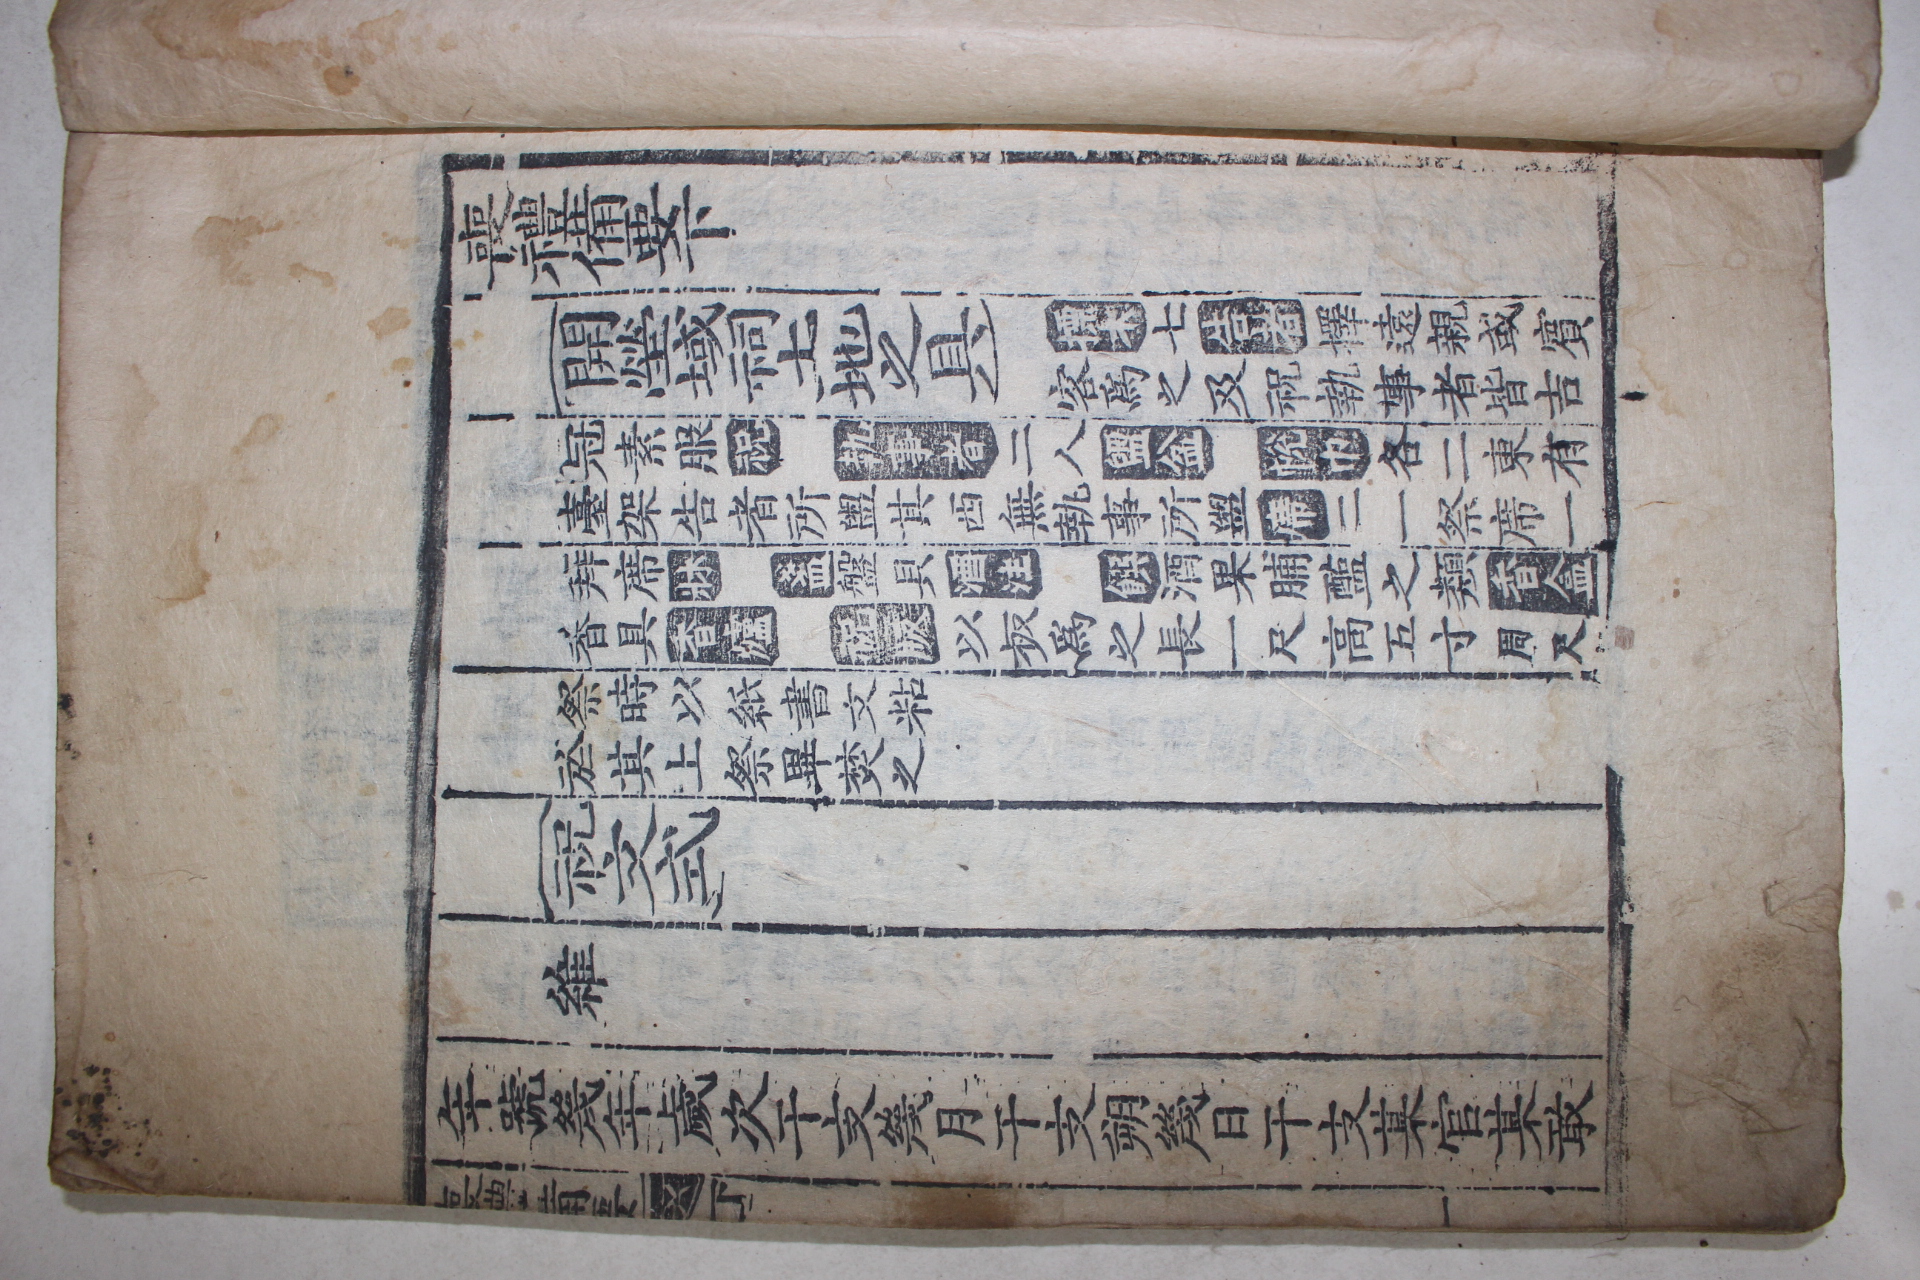 喪禮備要下
開塋域祠土地之具
標木七告者擇遠親或賓
客爲之及祝執事者皆吉
冠素服祝執事者二人盥盆帨巾各二東有
臺架告者所盥其西無執事所盥席二一祭席一
拜席牀盞盤具酒注饌酒果脯醢之類香盒
香具香爐祝板以板爲之長一尺高五寸周尺
祭時以紙書文粘
於其上祭畢焚之
祝文式
維
年號幾年歲次干支幾月干支朔幾日干支某官某敢
喪禮備要 下 一